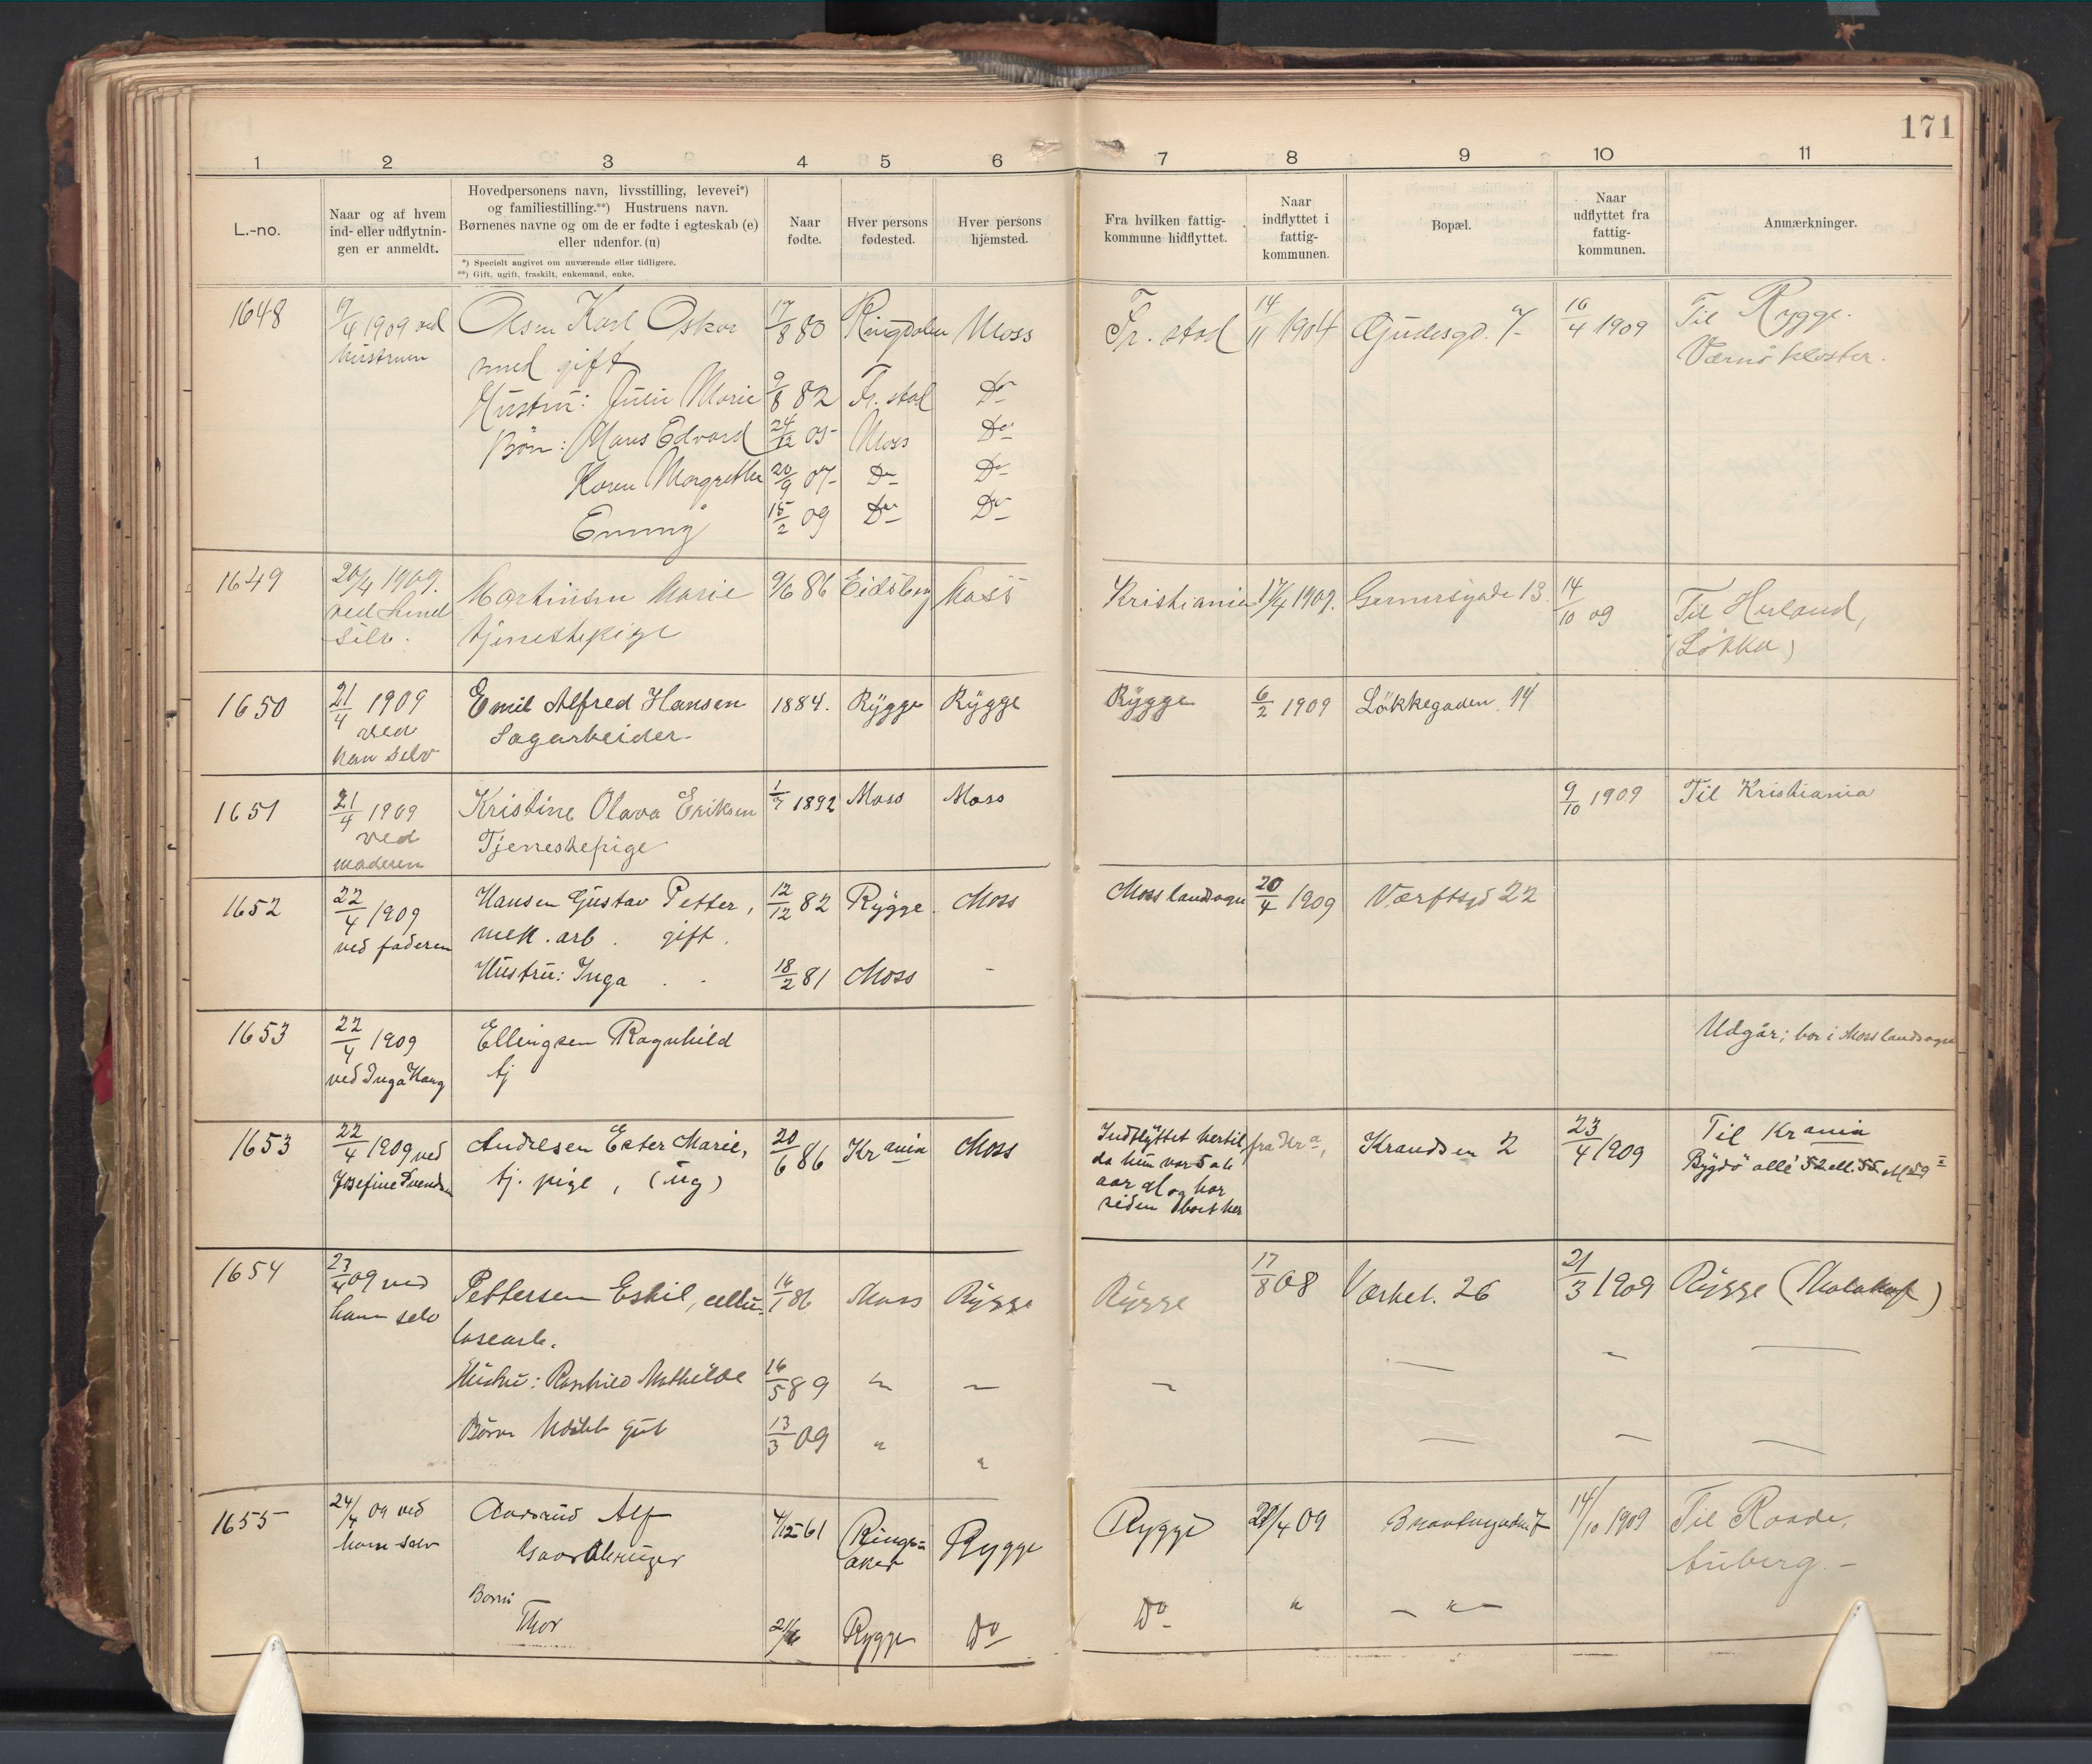 171
1 2 3 4 5 6 7 8 9 10 11
L.-no.
Naar og af hvem
ind- eller udflytnin-
gen er anmeldt.
Hovedpersonens navn, livsstilling, levevei*)
og familiestilling.**) Hustruens navn.
Børnenes navne og om de er fødte i egteskab (e)
eller udenfor. (u)
*) Specielt angivet om nuværende eller tidligere.
**) Gift, ugift, fraskilt, enkemand, enke.
Naar
fødte.
Hver persons
fødested.
Hver persons
hjemsted.
Fra hvilken fattig-
kommune hidflyttet.
Naar
indflyttet i
fattig-
kommunen.
Bopæl.
Naar
udflyttet fra
fattig-
kommunen.
Anmærkninger.
1648 /4 1909 ved Olsen Karl Oskar 17/8 80 Ringdalen Moss Fr. stad 14/11 1904 Gudesgd. 7 16/4 1909 Til Rygge.
hustruen
smed gift Værnø kloster.
Hustru: Julie Marie 9/8 82 Fr. stad Do
Børn: Hans Edvard 24/12 05 Moss Do
Karen Margrethe 20/9 07 Do Do
Emmy 15/2 09 Do Do
1649 20/4 1909. Martinsen Marie 9/6 86 Eidsberg Moss Kristiania 17/4 1909. Gernersgade 13. 14/10 09 Til Herland,
ved hende
selv. tjenestepige (Løkka)
1650 21/4 1909 Emil Alfred Hansen 1884. Rygge Rygge Rygge 6/2 1909 Løkkegaden 14
ved Sagarbeider
han selv
1651 21/4 1909 Kristine Olava Eriksen 1/7 1892 Moss Moss 9/10 1909 Til Kristiania
ved Tjenestepige
moderen
1652 22/4 1909 Hansen Gustav Petter, 12/12 82 Rygge. Moss Moss landsogn 20/4 1909 Værftsgd 22
ved faderen mek. arb. gift.
Hustru: Inga 18/2 81 Moss -
1653 22/4 1909 Ellingsen Ragnhild Udgår; bor i Moss landsogn
ved Inga Haug tj
1653 22/4 1909 ved Andresen Ester Marie, 20/6 86 Krania Moss Indflyttet hertil fra Kra, Krandsen 2 23/4 1909 Til Krania
Josefine Svendsen tj. pige, (ug) da hun var 5 a 6 Bygdø allé 52 ell. 55
aar gl og har
siden boet her
1654 23/4 09 ved Pettersen Eskil, cellu- 16/1 86 Moss Rygge Rygge 17/8 08 Værket. 26 21/3 1909 Rygge (Malakoff)
ham selv losearb.
Hustru: Ragnhild Mathilde 16/5 89 " —
Børn Udøbt gut 13/3 09 " "
1655 24/4 09 ved Aasrud Alf 4/12 61 Rings- Rygge Rygge 23/4 09 7 14/10 1909 Til Raade,
ham selv Gaardbruger aker
Børn
Thor 21/6 Rygge Do Do " — " —